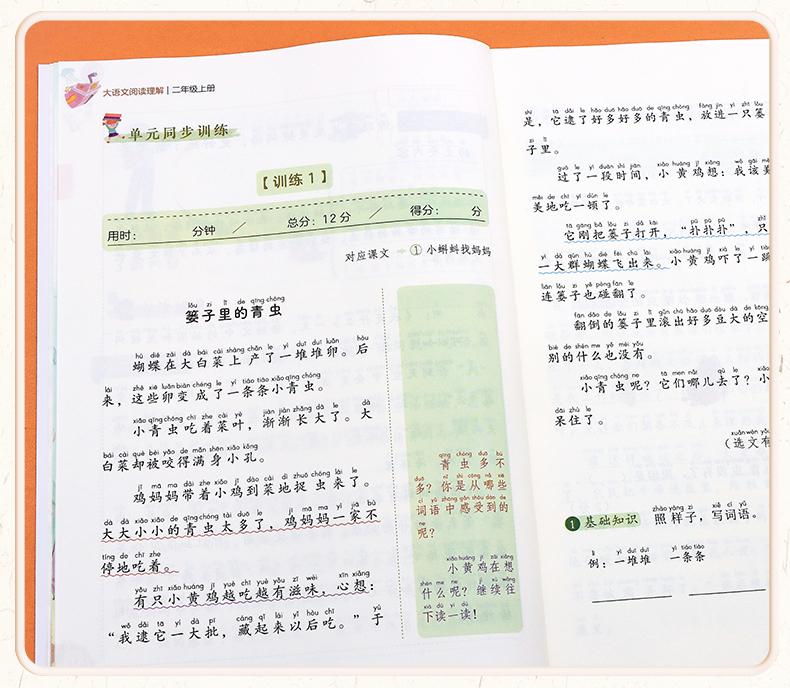 大语文阅读理解 | 二年级上册
单元同步训练
【训练1】
用时： 分钟 / 总分：12分 / 得分： 分
对应课文 → ① 小蝌蚪找妈妈
lǒu zi lǐ de qīng chóng
篓子里的青虫
hú dié zài dà bái cài shàng chǎn le yì duī duī luǎn hòu
蝴蝶在大白菜上产了一堆堆卵。后
lái zhè xiē luǎn biàn chéng le yì tiáo tiáo xiǎo qīng chóng
来，这些卵变成了一条条小青虫。
xiǎo qīng chóng chī zhe cài yè jiàn jiàn zhǎng dà le dà
小青虫吃着菜叶，渐渐长大了。大
bái cài què bèi yǎo de mǎn shēn xiǎo kǒng
白菜却被咬得满身小孔。
jī mā ma dài zhe xiǎo jī dào cài dì zhuō chóng lái le
鸡妈妈带着小鸡到菜地捉虫来了。
dà dà xiǎo xiǎo de qīng chóng tài duō le jī mā ma yì jiā bù
大大小小的青虫太多了，鸡妈妈一家不
tíng de chī zhe
停地吃着。
yǒu zhī xiǎo huáng jī yuè chī yuè yǒu zī wèi xīn xiǎng
有只小黄鸡越吃越有滋味，心想：
wǒ dǎi tā yí dà pī cáng qǐ lái yǐ hòu chī yú
“我逮它一大批，藏起来以后吃。”于
qīng chóng duō bù
青虫多不
duō nǐ shì cóng nǎ xiē
多？你是从哪些
cí yǔ zhōng gǎn shòu dào de
词语中感受到的
ne
呢？
xiǎo huáng jī zài xiǎng
小黄鸡在想
shén me ne jì xù wǎng
什么呢？继续往
xià dú yi dú
下读一读！
shì tā dǎi le hǎo duō hǎo duō de qīng chóng fàng jìn yì zhī lǒu
是，它逮了好多好多的青虫，放进一只篓
zi lǐ
子里。
guò le yí duàn shí jiān xiǎo huáng jī xiǎng wǒ gāi měi
过了一段时间，小黄鸡想：我该美
měi de chī yí dùn le
美地吃一顿了。
tā gāng bǎ lǒu zi dǎ kāi pū pū pū zhǐ
它刚把篓子打开，“扑扑扑”，只
yí dà qún hú dié fēi chū lái xiǎo huáng jī xià le yí tiào
一大群蝴蝶飞出来。小黄鸡吓了一跳
lián lǒu zi yě pèng fān le
连篓子也碰翻了。
fān dǎo de lǒu zi lǐ gǔn chū hǎo duō dòu dà de kōng
翻倒的篓子里滚出好多豆大的空
bié de shén me yě méi yǒu
别的什么也没有。
xiǎo qīng chóng ne tā men nǎr qù le xiǎo
小青虫呢？它们哪儿去了？小
dāi zhù le
呆住了。
xuǎn wén yǒu
（选文有
zhào yàng zi xiě cí yǔ
1 基础知识 照样子，写词语。
lì yì duī duī yì tiáo tiáo
例：一堆堆 一条条